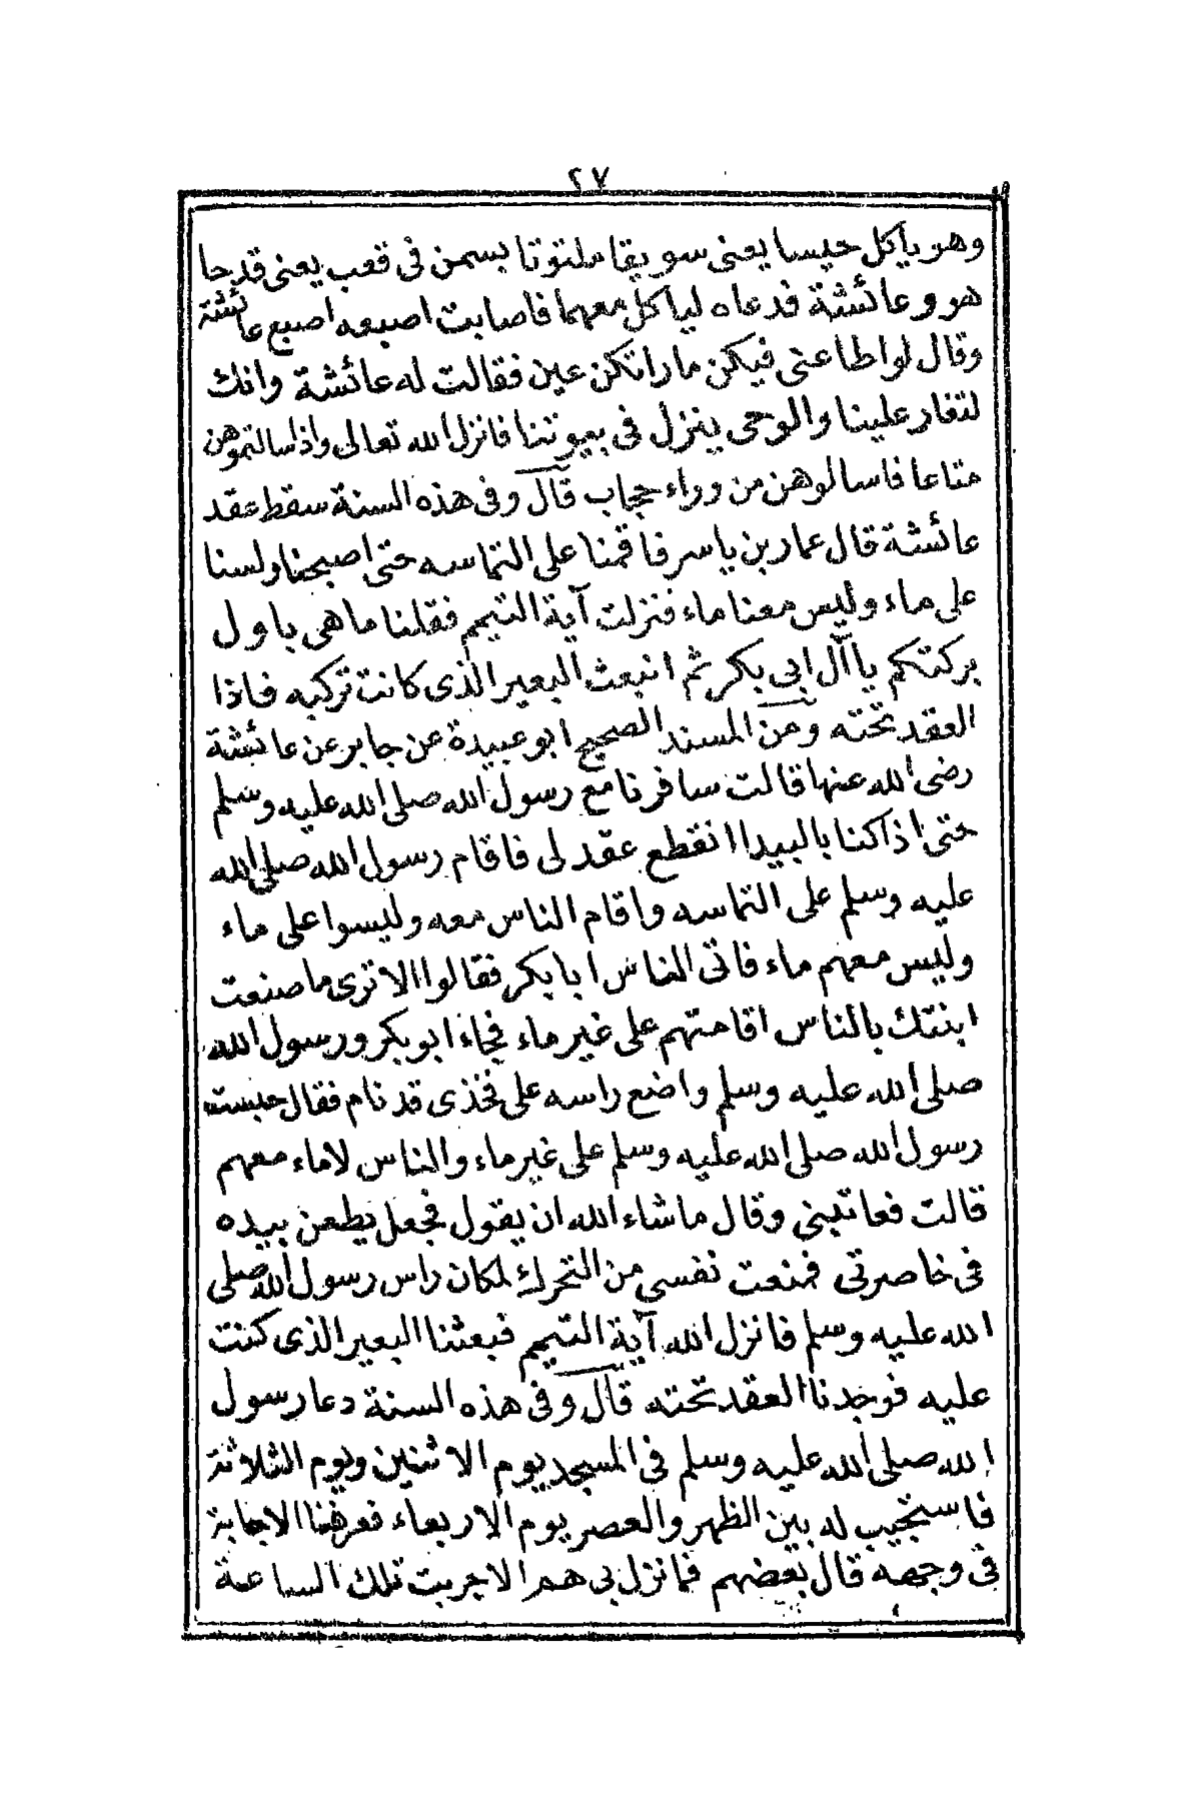 ٢٧
وهو ياكل حيسا يعنى سويقا ملتوتا بسمن فى قعب يعنى قدحا
هو وعائشة فدعاه لياكل معهما فاصابت اصبعه اصبع عائشة
وقال لو اطاعنى فيكن ما راتكن عين فقالت له عائشة وانك
لتغار علينا والوحى ينزل فى بيوتنا فانزل الله تعالى واذا سالتموهن
متاعا فاسالوهن من وراء حجاب قال وفى هذه السنة سقط عقد
عائشة قال عمار بن ياسر فاقمنا على التماسه حتى اصبحنا ولسنا
على ماء وليس معنا ماء فنزلت آية التيمم فقلنا ما هى باول
بركتكم يا آل ابى بكر ثم انبعث البعير الذى كانت تركبه فاذا
العقد تحته ومن المسند الصحيح ابو عبيدة عن جابر عن عائشة
رضى الله عنها قالت سافرنا مع رسول الله صلى الله عليه وسلم
حتى اذا كنا بالبيدا انقطع عقد لى فاقام رسول الله صلى الله
عليه وسلم على التماسه واقام الناس معه وليسوا على ماء
وليس معهم ماء فاتى الناس ابا بكر فقالوا الا ترى ما صنعت
ابنتك بالناس اقامتهم على غير ماء فجاء ابو بكر ورسول الله
صلى الله عليه وسلم واضع راسه على فخذى قد نام فقال حبست
رسول الله صلى الله عليه وسلم على غير ماء والناس لا ماء معهم
قالت فعاتبنى وقال ما شاء الله ان يقول فجعل يطعن بيده
فى خاصرتى فمنعت نفسي من التحرك لمكان راس رسول الله صلى
الله عليه وسلم فانزل الله آية التيمم فبعثنا البعير الذى كنت
عليه فوجدنا العقد تحته قال وفى هذه السنة دعا رسول
الله صلى الله عليه وسلم فى المسجد يوم الاثنين ويوم الثلاثة
فاستجيب له بين الظهر والعصر يوم الاربعاء فعرفنا الاجابة
فى وجهه قال بعضهم فما نزل بى هم الا جربت تلك الساعة